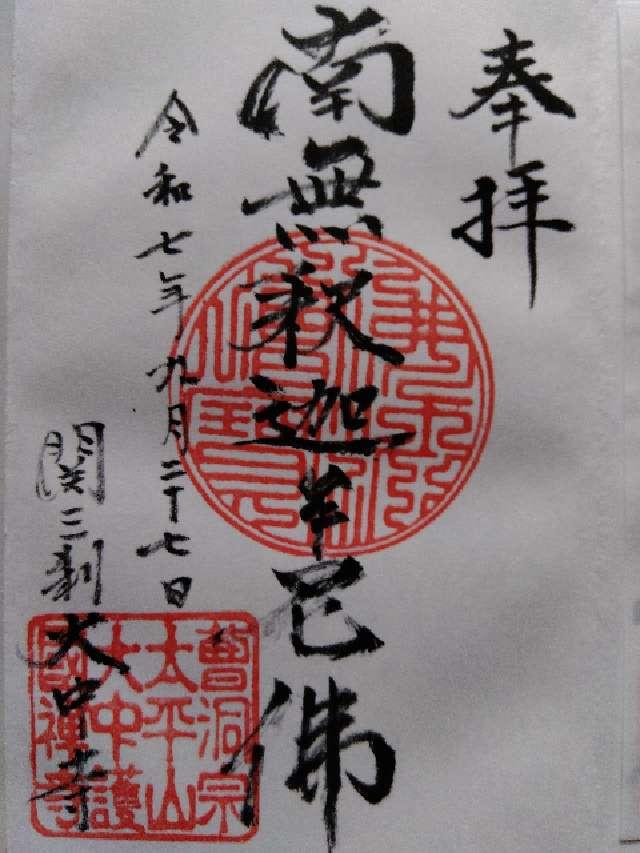 奉拝
南無釈迦牟尼佛
令和七年九月二十七日
関三刹
大中寺
曹洞宗
太平山
大中護
國禅寺